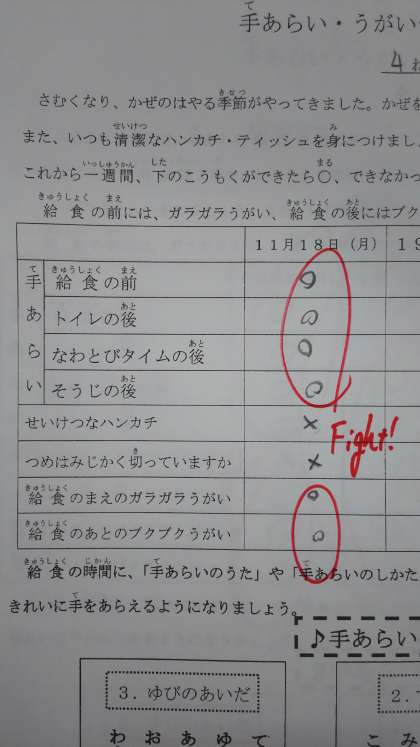 手あらい・うがい
4
さむくなり、かぜのはやる季節がやってきました。かぜを
また、いつも清潔なハンカチ・ティッシュを身につけまし
これから一週間、下のこうもくができたら〇、できなかっ
給食の前には、ガラガラうがい、給食の後にはブク
11月18日(月) 19
手あらい 給食の前 ○
トイレの後 ○
なわとびタイムの後 ○
そうじの後 ○
せいけつなハンカチ ×
Fight!
つめはみじかく切っていますか ×
給食のまえのガラガラうがい ○
給食のあとのブクブクうがい ○
給食の時間に、「手あらいのうた」や「手あらいのしかた
きれいに手をあらえるようになりましょう。
♪手あらい
3.ゆびのあいだ 2.
わおあゆで こみ